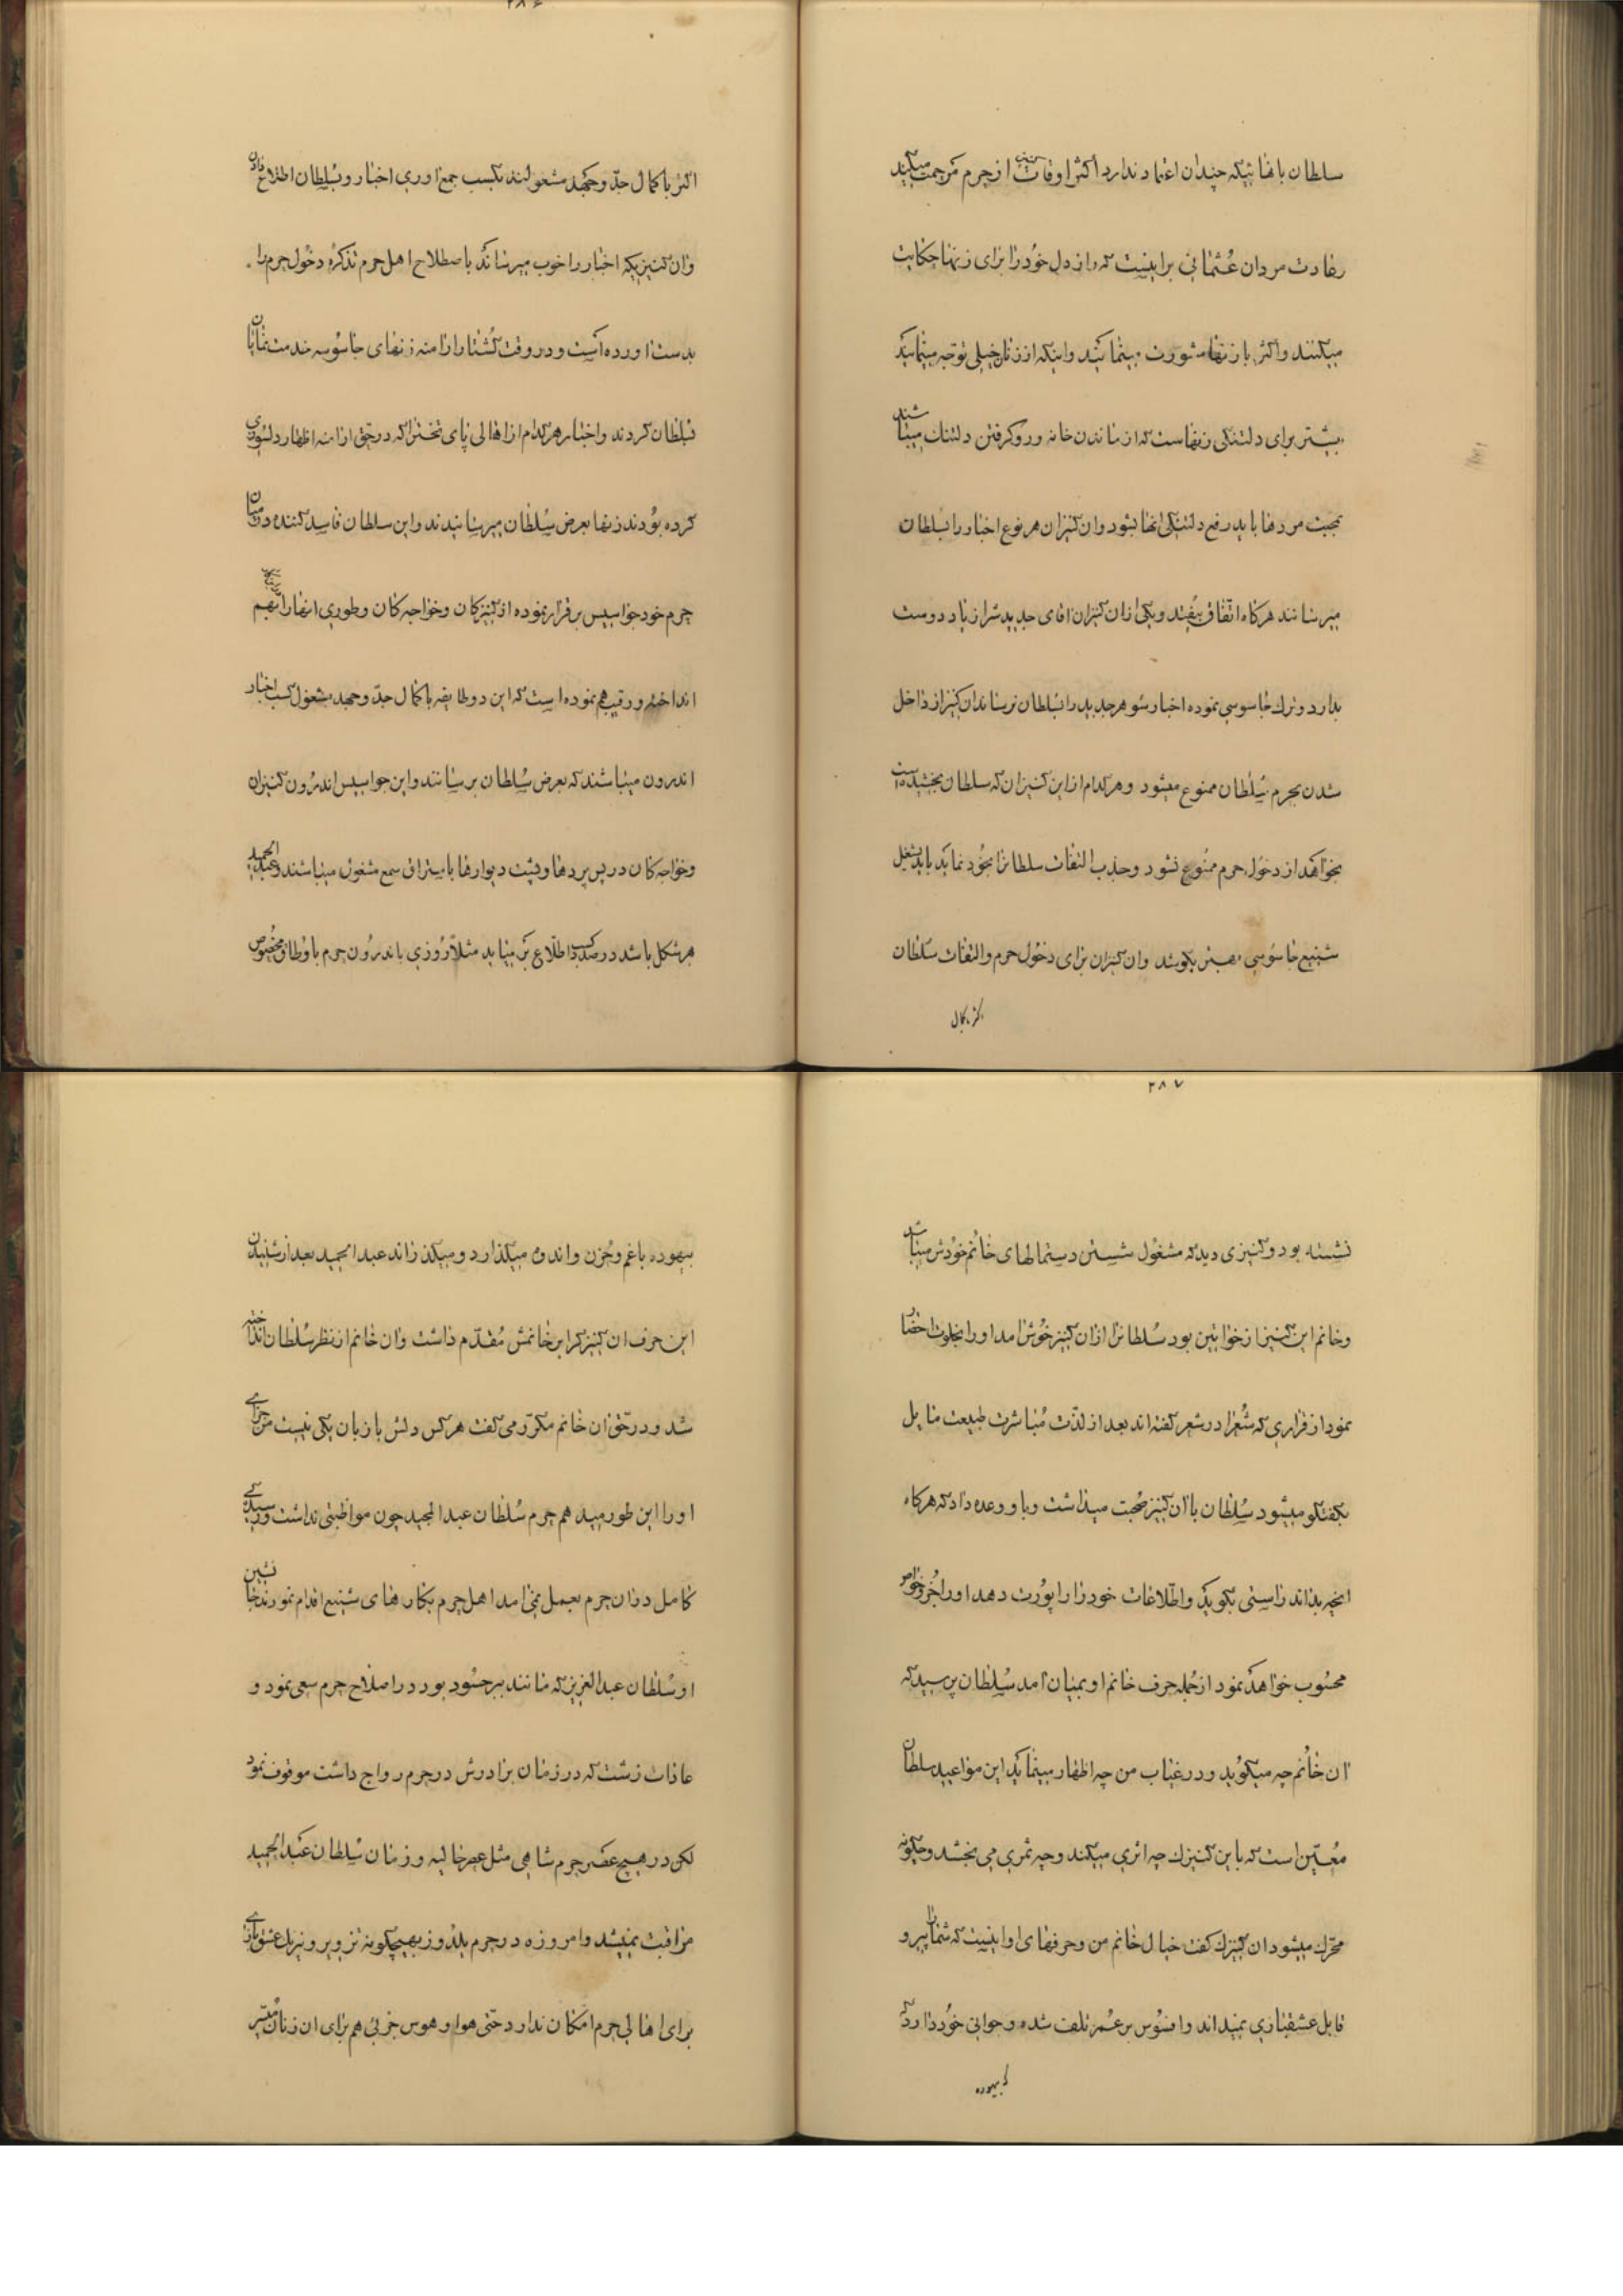 سلطان بانها ئیکه چندان اعتماد ندارد اکثر اوقات کنیز از حرم مرحمت میکند
وعادت مردان عثمانی براینست که راز دل خود را برای زنها حکایت
میکنند واکثر با زنها مشورت مینمایند واینکه از زنان خیلی توجه مینمایند
بیشتر برای دلتنکی زنهاست که از ماندن خانه ورو کرفتن دلتنك میباشند
بجهت مردها باید رفع دلتنکی انها بشود وان کنیزان هر نوع اخبار را بسلطان
میرسانند هرکاه اتفاق بیفتد ویکی از ان کنیزان اقای جدیدش را زیاد دوست
بدارد وترك جاسوسی نموده اخبار شوهر جدید را بسلطان نرساند ان کنیز از داخل
شدن بحرم سلطان ممنوع میشود وهرکدام از این کنیزان که سلطان بخشیده است
بخواهد از دخول حرم ممنوع نشود وجذب التفات سلطانرا بخود نماید باید بشغل
شنیع جاسوسی بهتر بکوشد وان کنیزان برای دخول حرم والتفات سلطان
اکثر باکمال
۲۸۶
اکثر باکمال جدّ وجهد مشغولند بکسب جمع اوری اخبار وبسلطان اطلاع دادن
وان کنیزیکه اخبار را خوب میرساند باصطلاح اهل حرم تذکره دخول حرم را
بدست اورده است ودر وقت کشتار ارامنه زنهای جاسوسه خدمت نمایان
بسلطان کردند واخبار هرکدام از اهالی پای تخت را که در حق ارامنه اظهار دلسوزی
کرده بودند زنها بعرض سلطان میرسانیدند واین سلطان فاسد کننده در میان
حرم خود جواسیس برقرار نموده از کنیزکان وخواجه کان وطوری انها را بهم
انداخته ورقیب هم نموده است که این دو طایفه باکمال جدّ وجهد مشغول کسب اخبار
اندرون میباشند که بعرض سلطان برسانند واین جواسیس اندرون کنیزان
وخواجه کان در پس پردها وپشت دیوارها باستراق سمع مشغول میباشند وعبدالحمید
هر شکل باشد در صدد کسب اطلاع بر میاید مثلاً روزی باندرون حرم باوطاق مخصوص
۲۸۷
نشسته بود وکنیزی دید که مشغول شستن دستمالهای خانم خودش میباشد
وخانم این کنیز از خواتین بود سلطانرا از ان کنیز خوش امد او را بخلوت احضار
نمود از قراری که شعرا در شعر کفته اند بعد از لذت مباشرت طبیعت مایل
بکفتکو میشود سلطان با ان کنیز صحبت میداشت وباو وعده داد که هرکاه
انچه بداند راستی بکوید واطلاعات خود را راپورت دهد او را جزو خواص
محسوب خواهد نمود از جمله حرف خانم او بمیان امد سلطان پرسید که
ان خانم چه میکوید ودر غیاب من چه اظهار مینماید این مواعید سلطان
معین است که باین کنیزك چه اثری میکند وچه ثمری می بخشد وچکونه
محرّك میشود ان کنیزك کفت خیال خانم من وحرفهای او اینست که شما را پیر و
قابل عشقبازی نمیداند وافسوس بر عمر تلف شده وجوانی خود دارد که
که بیهوده
بیهوده باغم وحزن واندوه میکذارد ومیکذراند عبدالحمید بعد از شنیدن
این حرف ان کنیز را بر خانمش مقدّم داشت وان خانم از نظر سلطان انداخته
شد ودر حق ان خانم مکرّر می کفت هرکس دلش با زبان یکی نیست من جزای
او را این طور میدهم حرم سلطان عبدالمجید چون مواظبتی نداشت ورسیدکی
کامل در ان حرم بعمل نمی امد اهل حرم بکارهای شنیع اقدام نمودند جانشین
او سلطان عبدالعزیز که مانند ببر حسود بود در اصلاح حرم سعی نمود و
عادات زشت که در زمان برادرش در حرم رواج داشت موقوف نمود
لکن در هیچ عصر حرم شاهی مثل عصر حالیه وزمان سلطان عبدالحمید
مراقبت نمیشد وامروزه در حرم یلدوز بهیچکونه تزویر ونیرنك عشقبازی
برای اهالی حرم امکان ندارد حتی هوا وهوس جزئی هم برای ان زنان میسّر